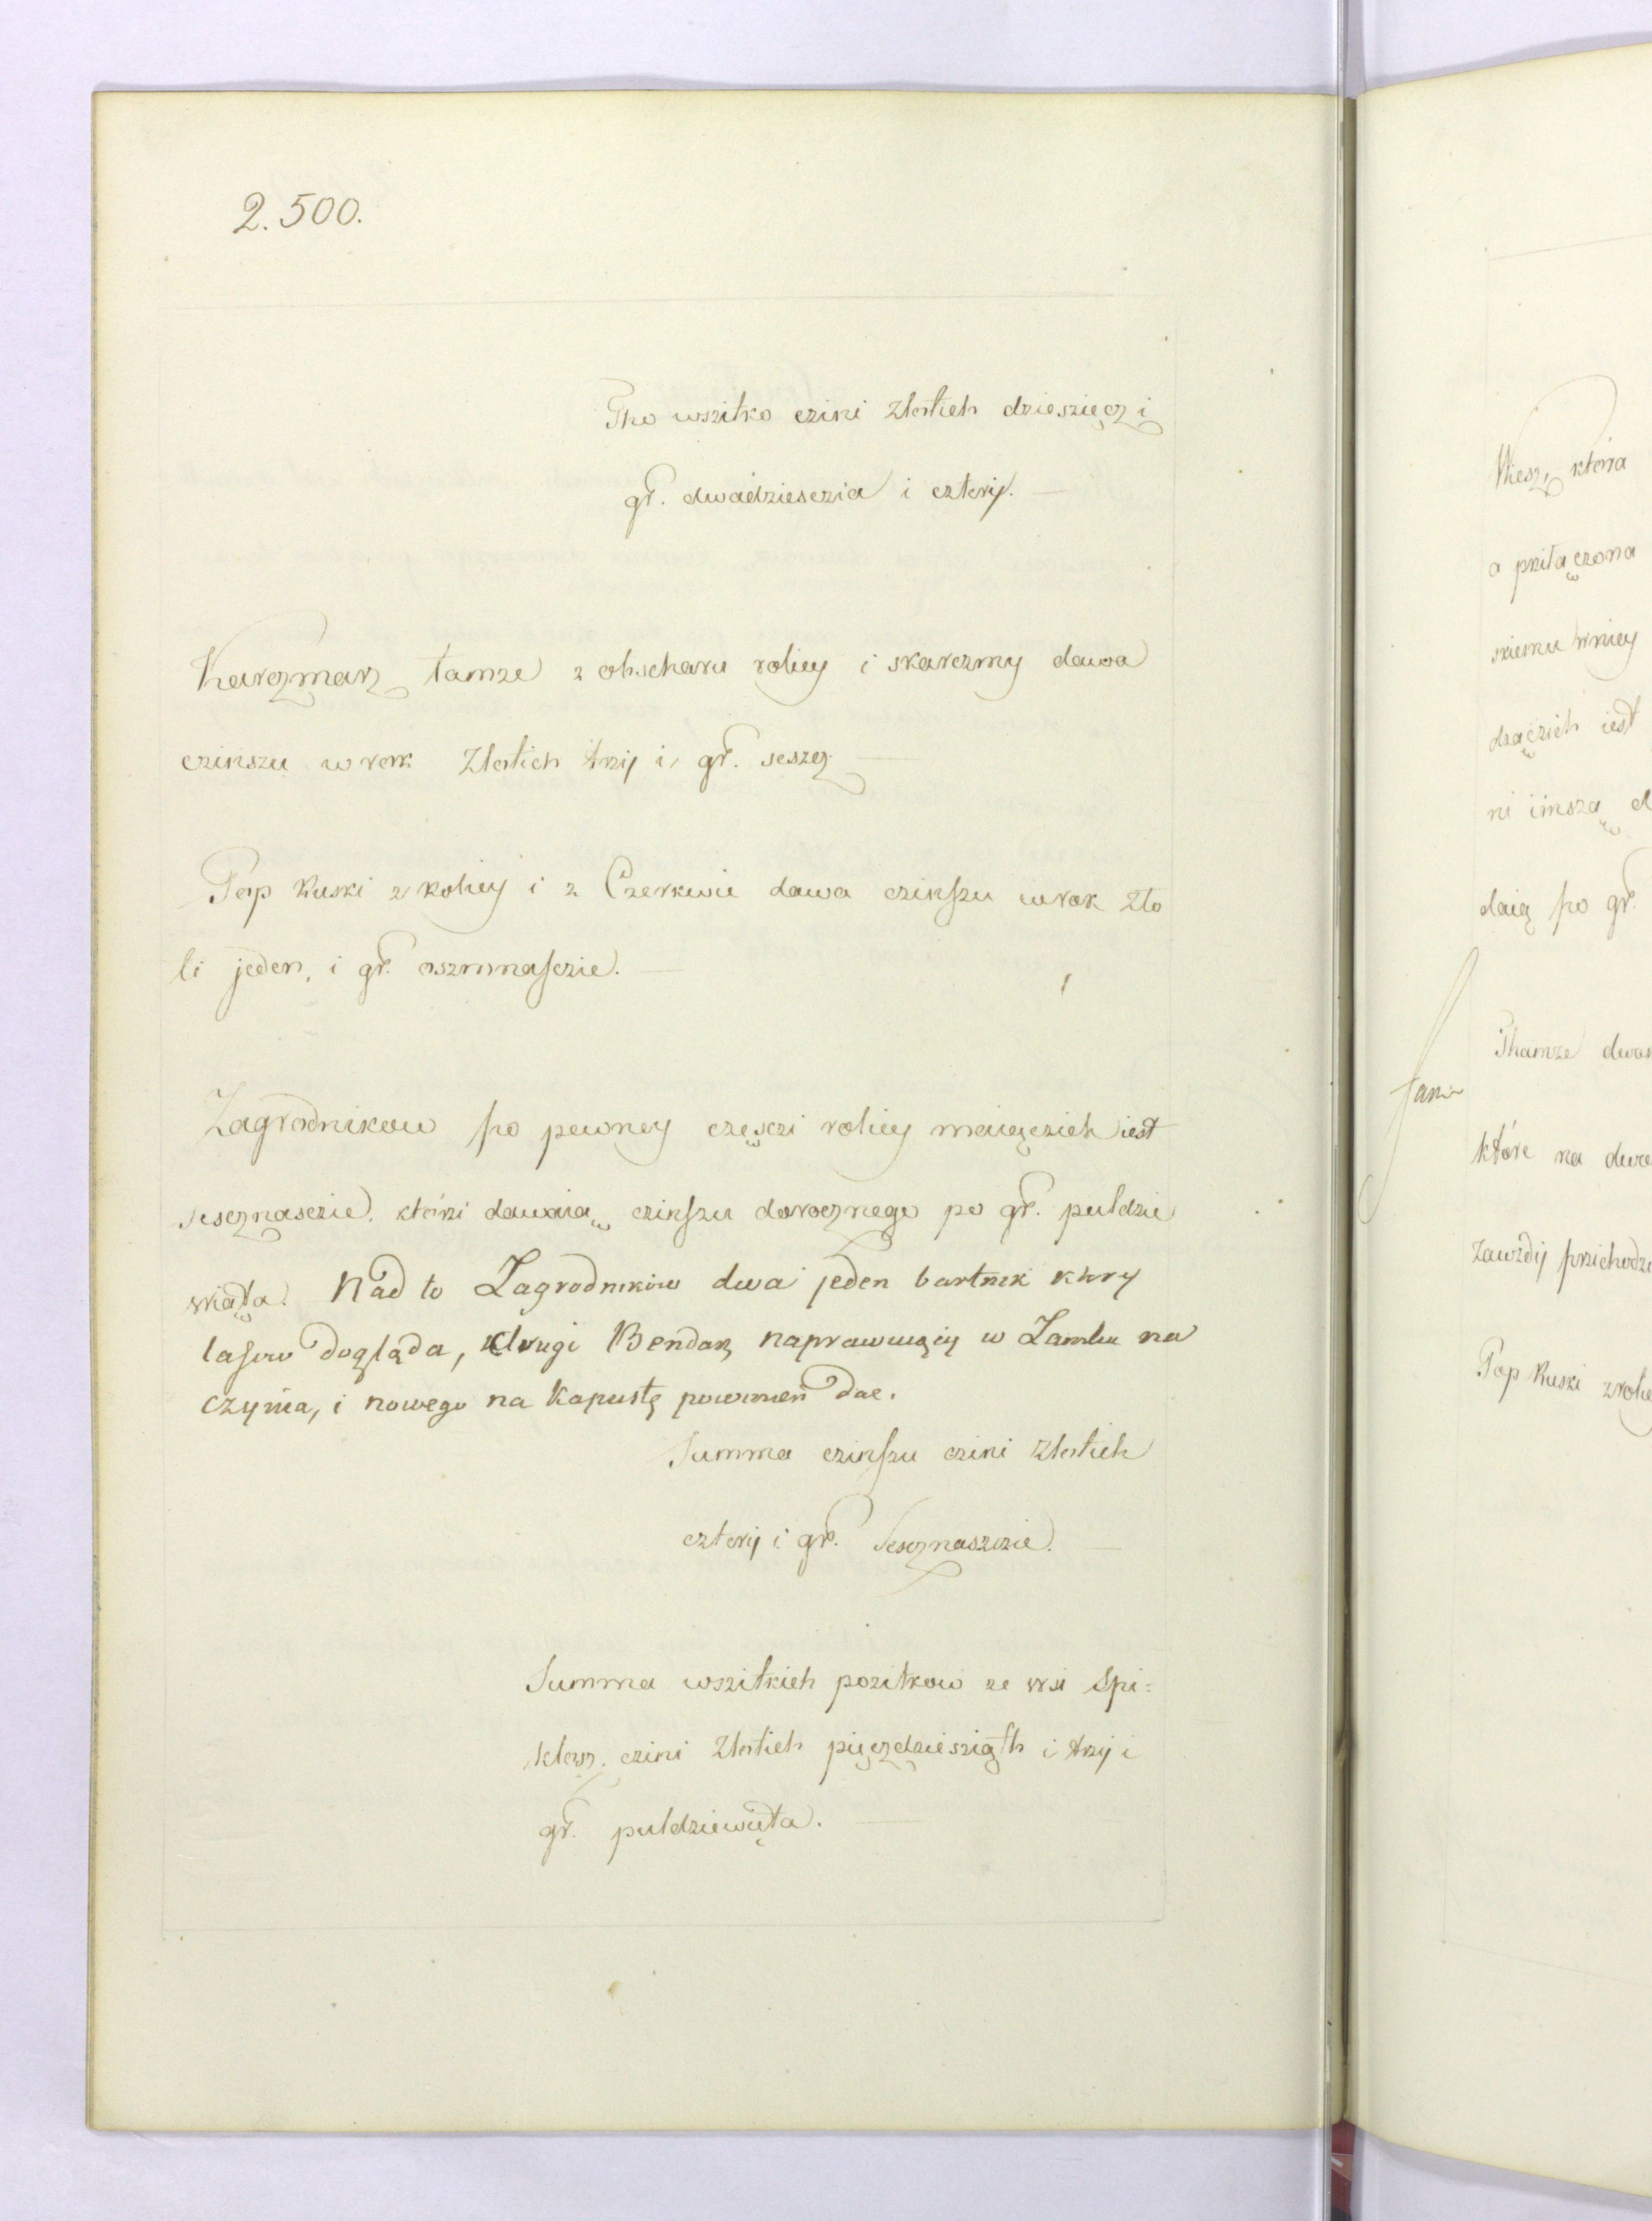 2.500.
Tho wszitko czini Zlotich dzieszięcz i
gr. dwadziesczia i czterij.
Karczmarz tamze z obscharu roliey i skarczmy dawa
czinszu w rok Zlotich trzij i gr. seszcz
Pop Ruski z Roliey i z Czerkwie dawa czinszu wrok zło
ti jeden, i gr. oszmnasczie.
Zagrodnikow po pewney częsczi roliey maiączich iest
sescznasczie. którzi dawaią czinszu dorocznego po gr. puldzie
wiąta. Nad to Zagrodników dwa jeden bartnik ktory
lasow dogląda, drugi Bendarz naprawuiący w Zamku na
czynia, i nowego na Kapustę powinien dac.
Summa czinszu czini Zlotich
czterij i gr. Sescznaszczie.
Summa wszitkich pozitkow ze wsi Spi=
klosz. czini Zlotich pięczdziesziąth i trzij i
gr. puldziewięta.
Wiesz, która
a prziłączona
skiemu wniey
dzączich iest
ni i insza
daią po gr.
Thamze
fami
które na
zawzdij przichodzi
Pop Ruski